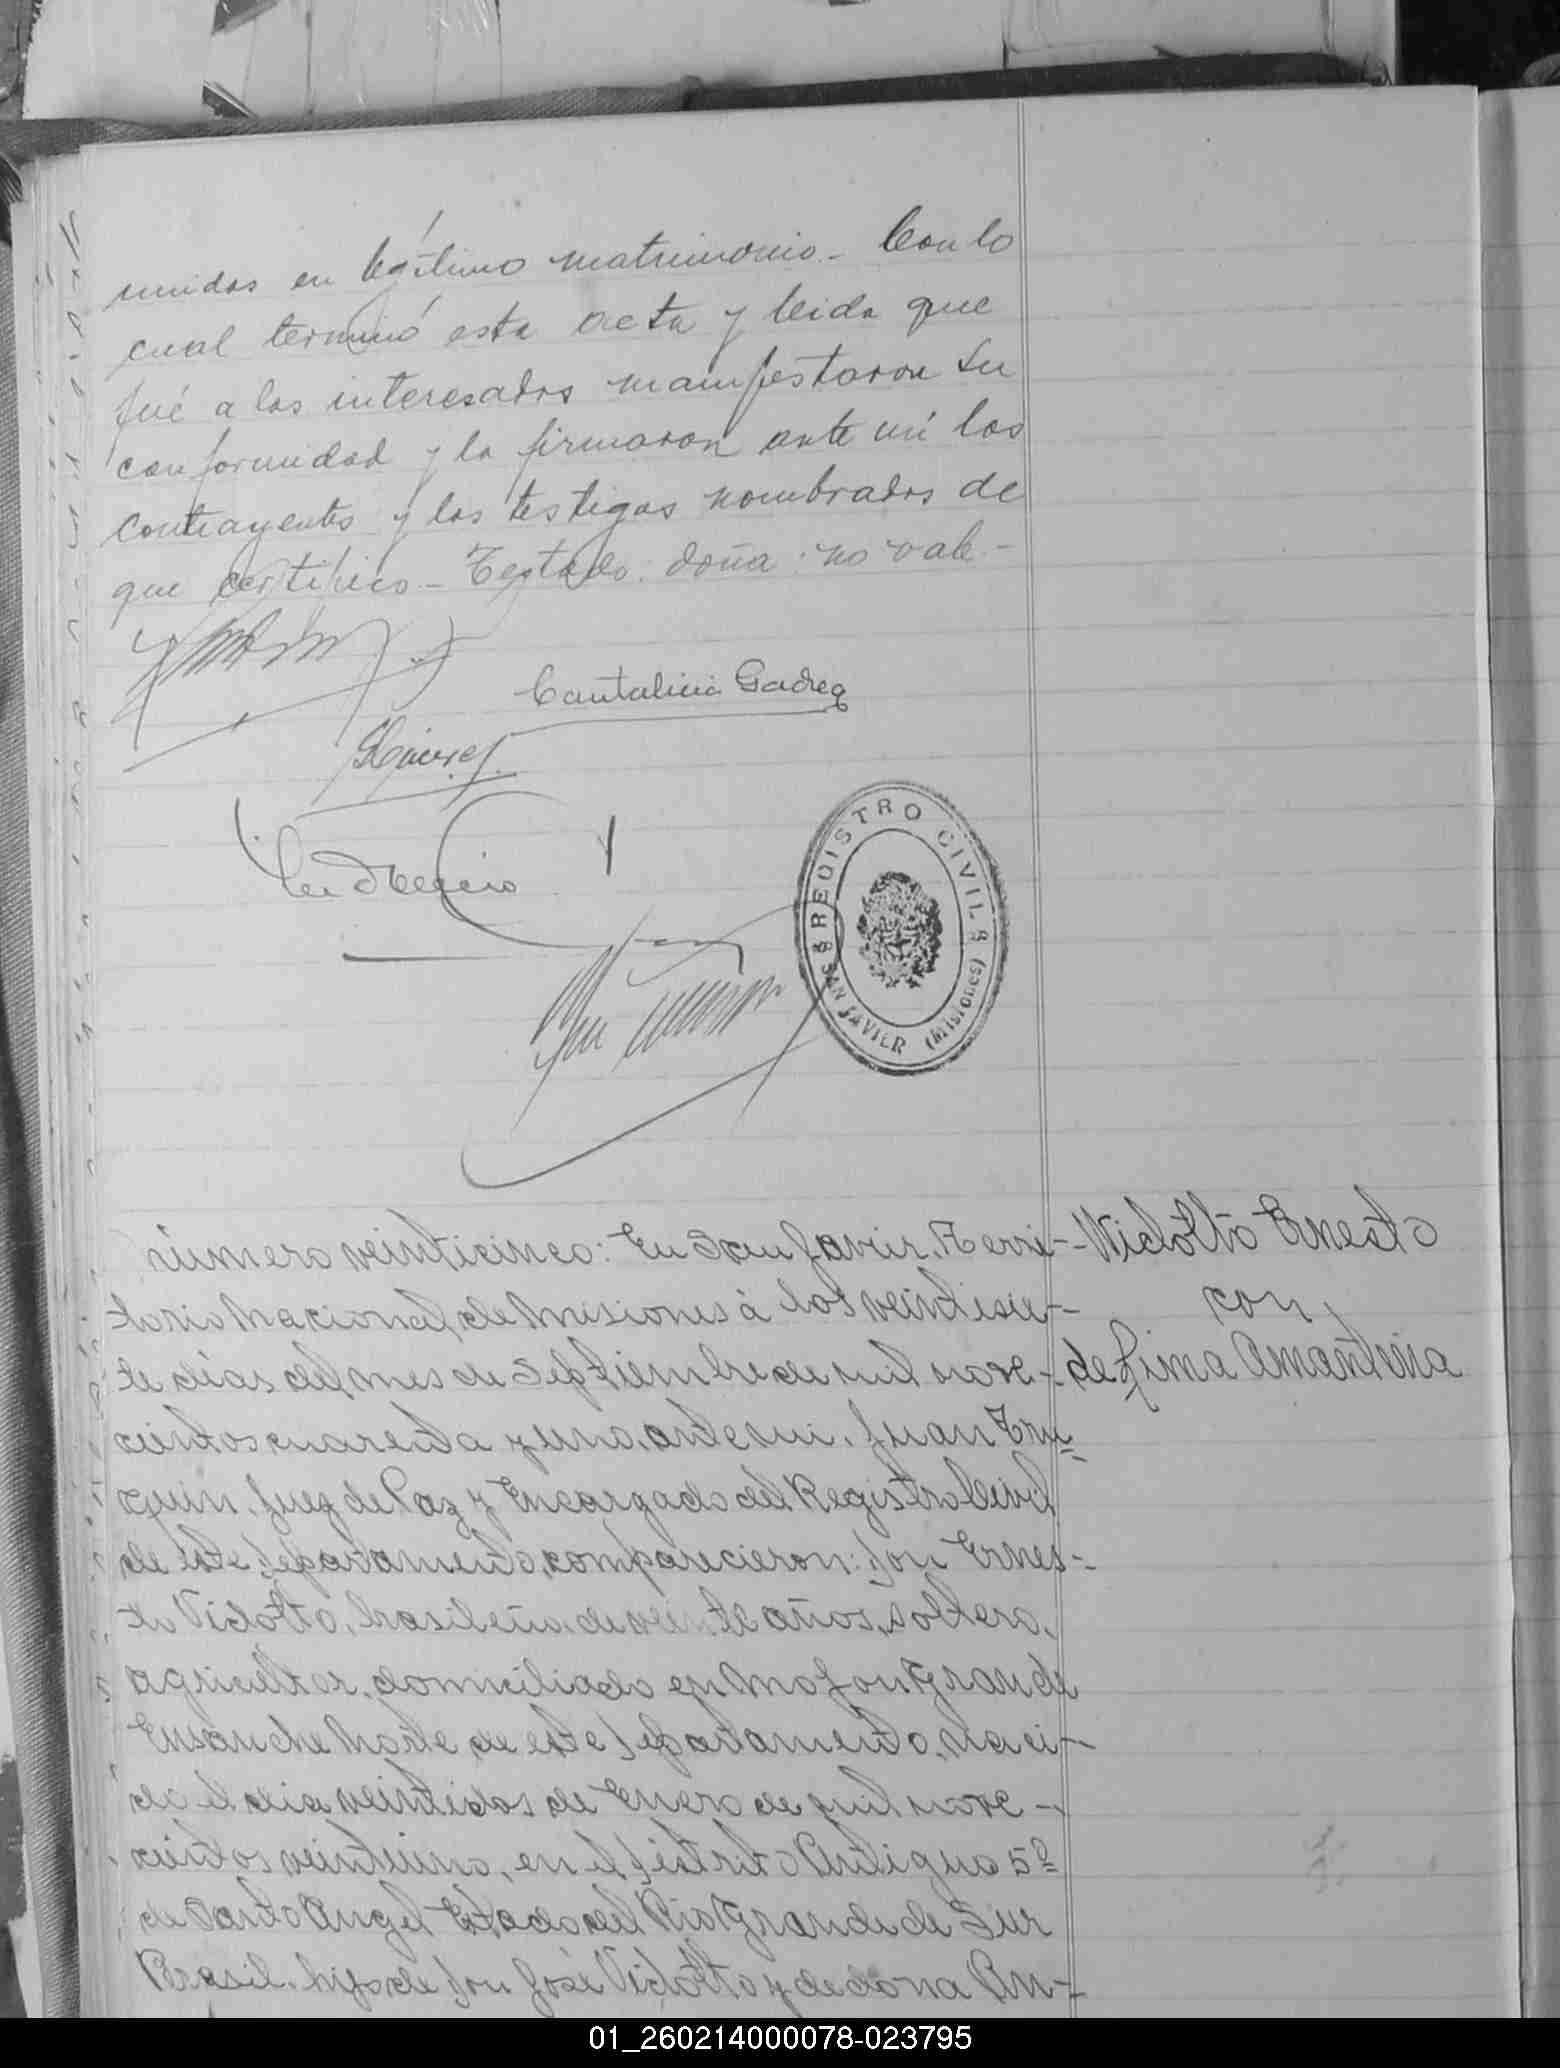 unidos en legítimo matrimonio - Con lo
cual terminó esta acta y leida que
fué a los interesados manifestaron su
conformidad y la firmaron ante mi los
contrayentes y los testigos nombrados de
que certifico - Testado: doña: no vale -
REGISTRO CIVIL
SAN JAVIER (Misiones)
Número veinticinco: En San Javier, Terri-
torio Nacional de Misiones á los veintisie-
te días del mes de Septiembre de mil nove-
cientos cuarenta y uno, ante mi, Juan Tru-
quin, Juez de Paz y Encargado del Registro Civil
de este Departamento, comparecieron: Don Ernes-
to Vidotto, brasileño, de veinte años, soltero,
agricultor, domiciliado en Mojon Grande
Ensanche Norte de este Departamento, naci-
do el dia veintidos de Enero de mil nove-
cientos veintiuno, en el Distrito Antigua 5º
de Santo Angel Estado del Rio Grande de Sur
Brasil, hijo de Don José Vidotto y de dona An-
Widotto Ernesto
con
de Lima Amantina
01_260214000078-023795